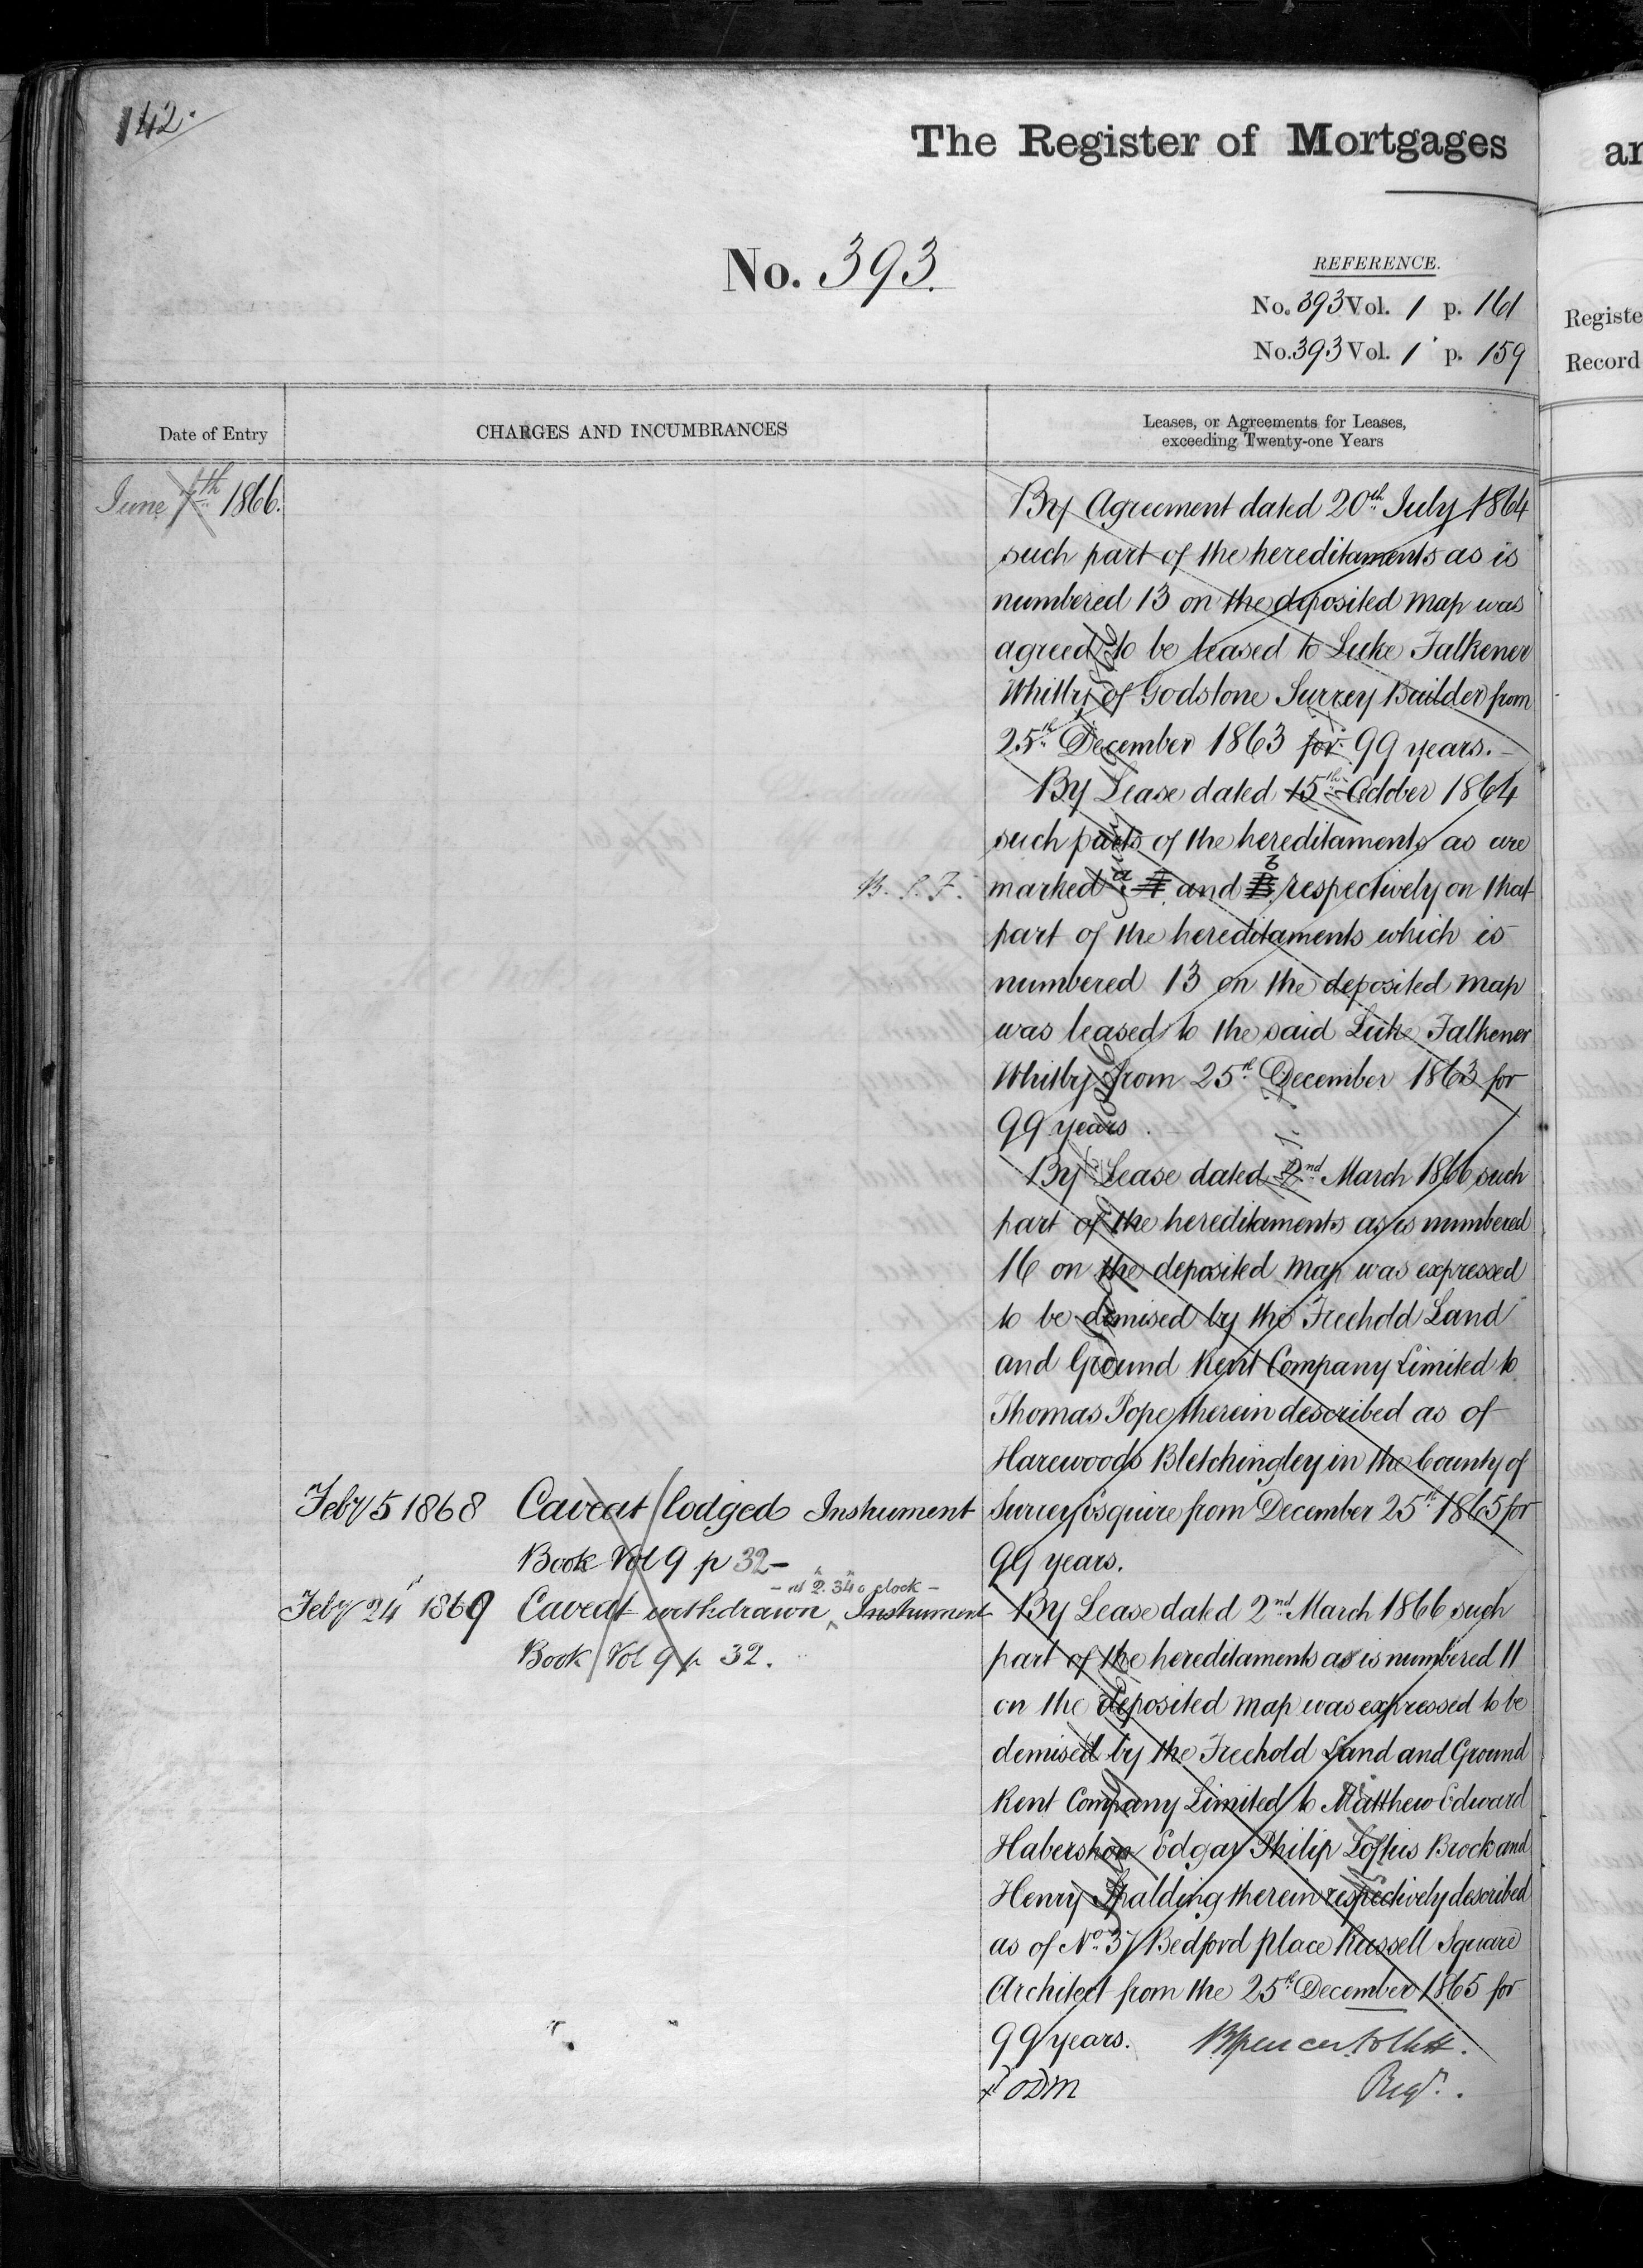 142.
The Register of Mortgages
No. 393.
REFERENCE.
No. 393 Vol. 1 p. 161
No. 393 Vol. 1 p. 159
Date of Entry
CHARGES AND INCUMBRANCES
Leases, or Agreements for Leases,
exceeding Twenty-one Years
June 7th 1866.
By Agreement dated 20th July 1864
such part of the hereditaments as is
numbered 13 on the deposited map was
agreed to be leased to Luke Falkener
Whitby of Godstone Surrey Builder from
25th December 1863 for 99 years. —
By Lease dated 15th October 1864
such parts of the hereditaments as are
B. S. F.
marked a and b respectively on that
part of the hereditaments which is
numbered 13 on the deposited map
was leased to the said Luke Falkener
Whitby from 25th December 1863 for
99 years.
By Lease dated 2nd March 1866 such
part of the hereditaments as is numbered
16 on the deposited map was expressed
to be demised by the Freehold Land
and Ground Rent Company Limited to
Thomas Pope therein described as of
Harewoods Bletchingley in the County of
Surrey Esquire from December 25th 1865 for
99 years.
Feby 5 1868 Caveat lodged Instrument
Book Vol 9 p 32 –
– at 2. 34 o clock –
Feby 24 1869 Caveat withdrawn Instrument
Book Vol 9 p 32.
By Lease dated 2nd March 1866 such
part of the hereditaments as is numbered 11
on the deposited map was expressed to be
demised by the Freehold Land and Ground
Rent Company Limited to Matthew Edward
Habershon Edgar Philip Loftus Brock and
Henry Spalding therein respectively described
as of No. 37 Bedford place Russell Square
Architect from the 25th December 1865 for
99 years.
BSpencer Follett.
Regr.
ar
Registe
Record